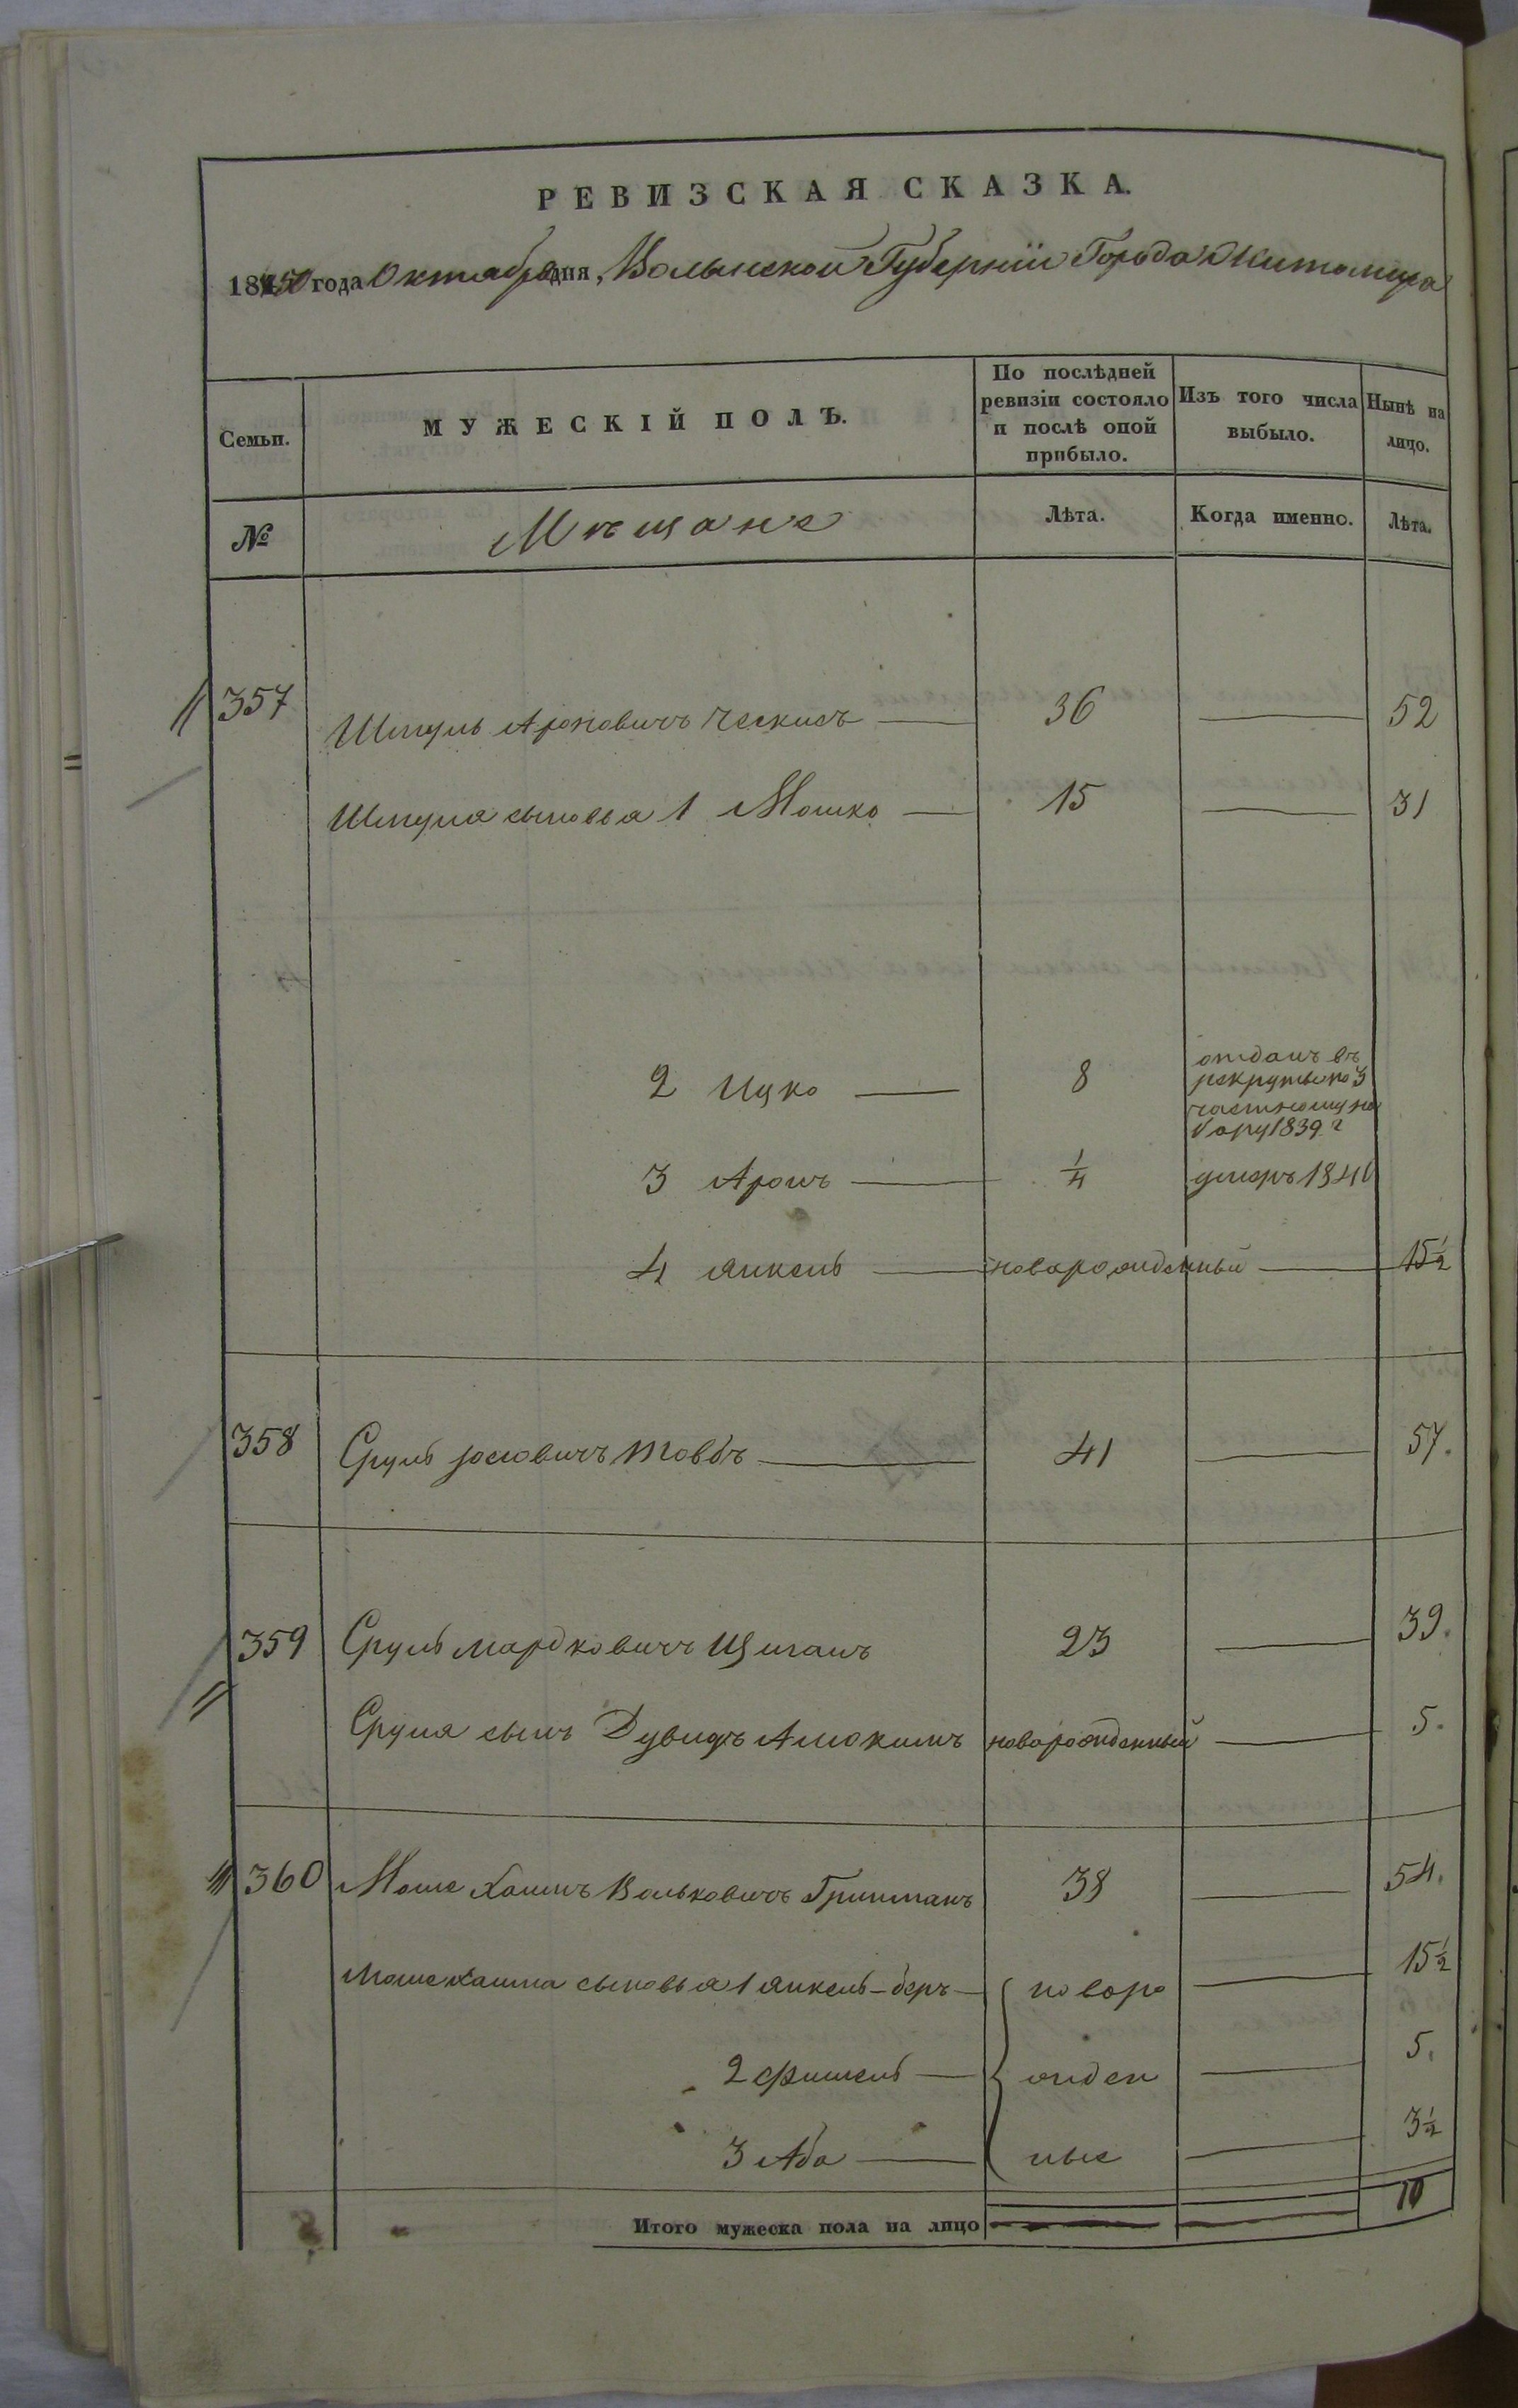 РЕВИЗСКАЯ СКАЗКА.
1850 года Октября дня, Волынской Губерніи Города Житомира
Семьи.
МУЖЕСКІЙ ПОЛЪ.
По послѣдней ревизіи состояло и послѣ оной прибыло.
Изъ того числа выбыло.
Нынѣ на лицо.
№
Мѣщане
Лѣта.
Когда именно.
Лѣта.
357 Шмуль Ароновичъ 36 52
Шмуля сыновья 1 Мошко 15 31
2 Ицко 8 отданъ въ
рекруты по 3
частному на
бору 1839 г
3 Аронъ 1/4 умеръ 1840
4 Янкель новорожденный 15 1/2
358 Сруль Іосіовичъ Товбъ 41 57.
359 Сруль Мардковичъ Циганъ 23 39.
Сруля сынъ Дувидъ новорожденный 5.
360 Моше Хаимъ Вольковичъ 38 54.
Моше Хаима сыновья 1 Янкель-беръ новоро 15 1/2
2 Фишель жден 5.
3 Аба ные 3 1/2
Итого мужеска пола на лицо 10